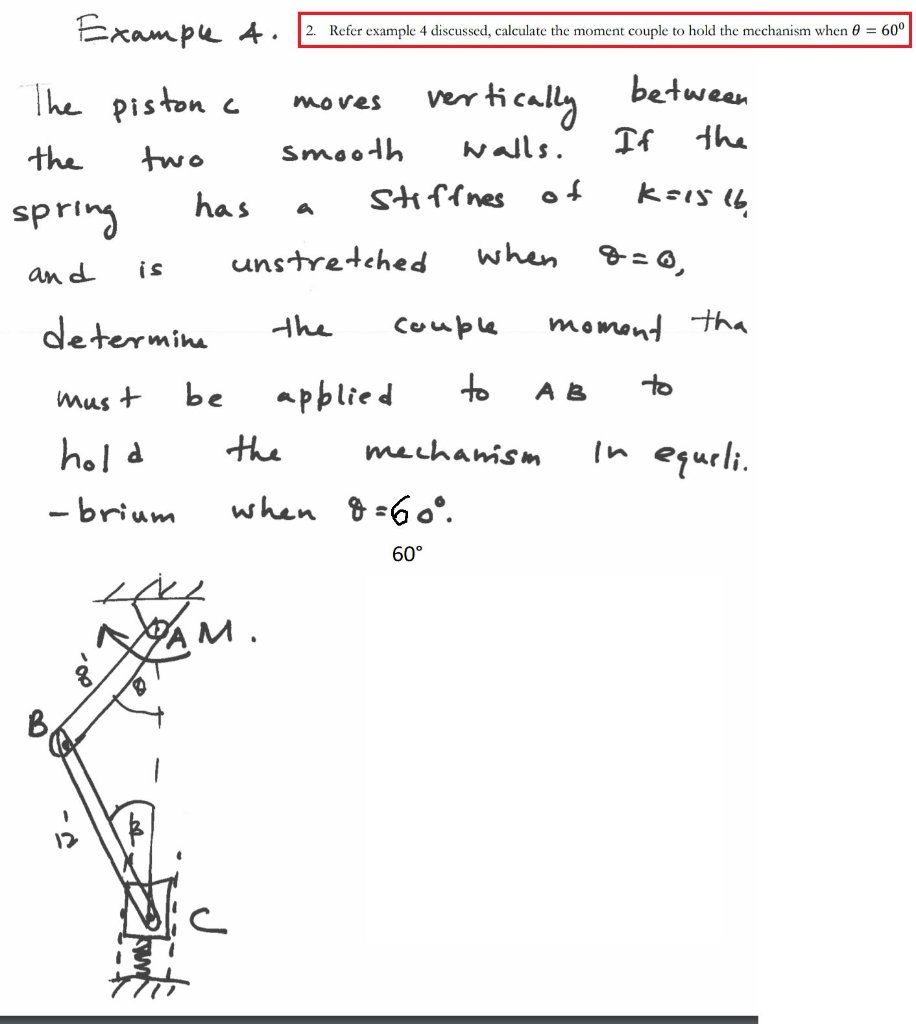 Example 4.
2. Refer example 4 discussed, calculate the moment couple to hold the mechanism when θ = 60⁰
The piston c moves vertically between
the two smooth walls. If the
spring has a Stiffnes of K=15 lb
and is unstretched when θ=0,
determine the couple moment tha
must be applied to AB to
hold the mechanism In equili.
-brium when θ=60°.
60°
A M.
8'
θ
B
12'
β
C